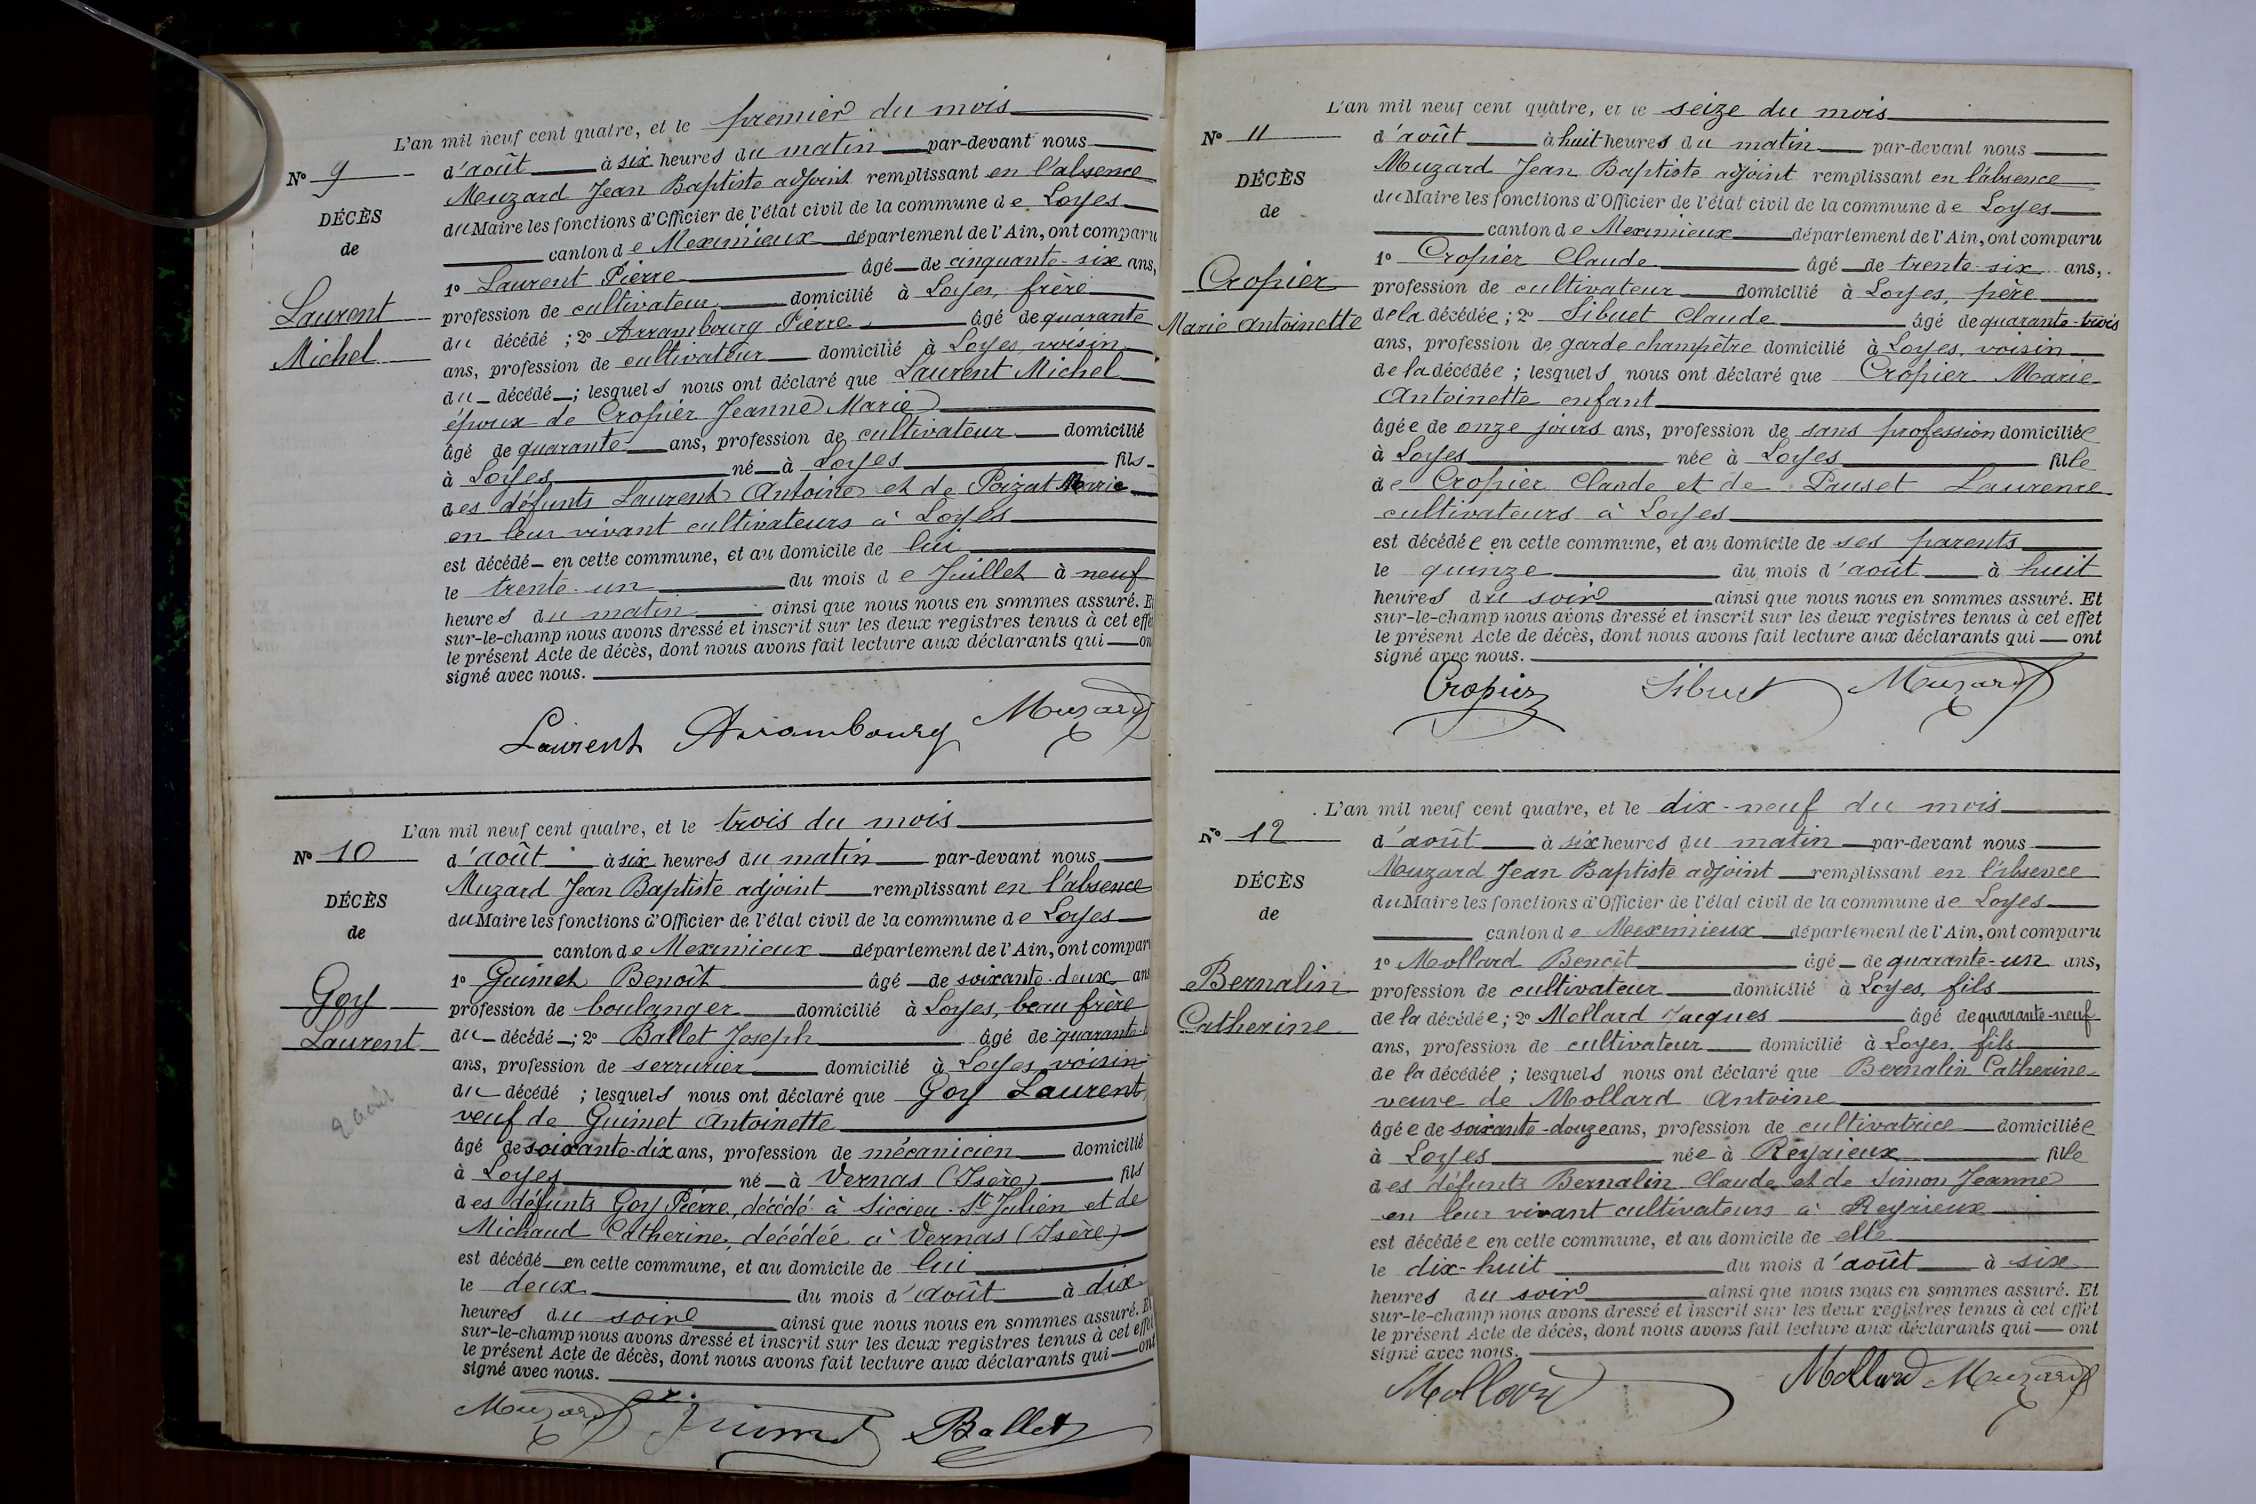 L'an mil neuf cent quatre, et le premier du mois
N° 9
d'août à six heures du matin par-devant nous
DÉCÈS
de
Laurent
Michel
Muzard Jean Baptiste adjoint remplissant en l'absence
du Maire les fonctions d'Officier de l'état civil de la commune de Loyes
canton de Meximieux département de l'Ain, ont comparu
1° Laurent Pierre âgé de cinquante-six ans,
profession de cultivateur domicilié à Loyes, frère
du décédé ; 2° Arrambourg Pierre âgé de quarante
ans, profession de cultivateur domicilié à Loyes, voisin
du décédé ; lesquels nous ont déclaré que Laurent Michel
époux de Cropier Jeanne Marie
âgé de quarante ans, profession de cultivateur domicilié
à Loyes né à Loyes fils
des défunts Laurent Antoine et de Poizat Marie
en leur vivant cultivateurs à Loyes
est décédé en cette commune, et au domicile de lui
le trente-un du mois de Juillet à neuf
heures du matin ainsi que nous nous en sommes assuré. Et
sur-le-champ nous avons dressé et inscrit sur les deux registres tenus à cet effet
le présent Acte de décès, dont nous avons fait lecture aux déclarants qui ont
signé avec nous.
Laurent Arrambourg Muzard
L'an mil neuf cent quatre, et le trois du mois
N° 10
d'août à six heures du matin par-devant nous
DÉCÈS
de
Goy
Laurent
2 août
Muzard Jean Baptiste adjoint remplissant en l'absence
du Maire les fonctions d'Officier de l'état civil de la commune de Loyes
canton de Meximieux département de l'Ain, ont comparu
1° Guimet Benoît âgé de soixante-deux ans
profession de boulanger domicilié à Loyes, beau frère
du décédé ; 2° Ballet Joseph âgé de quarante
ans, profession de serrurier domicilié à Loyes, voisin
du décédé ; lesquels nous ont déclaré que Goy Laurent
veuf de Guimet Antoinette
âgé de soixante-dix ans, profession de mécanicien domicilié
à Loyes né à Vernas (Isère) fils
des défunts Goy Pierre, décédé à Siccieu-St Julien et de
Michaud Catherine, décédée à Vernas (Isère)
est décédé en cette commune, et au domicile de lui
le deux du mois d'août à dix
heures du soir ainsi que nous nous en sommes assuré. Et
sur-le-champ nous avons dressé et inscrit sur les deux registres tenus à cet effet
le présent Acte de décès, dont nous avons fait lecture aux déclarants qui ont
signé avec nous.
Muzard Guimet Ballet
L'an mil neuf cent quatre, et le seize du mois
N° 11
d'août à huit heures du matin par-devant nous
DÉCÈS
de
Cropier
Marie Antoinette
Muzard Jean Baptiste adjoint remplissant en l'absence
du Maire les fonctions d'Officier de l'état civil de la commune de Loyes
canton de Meximieux département de l'Ain, ont comparu
1° Cropier Claude âgé de trente-six ans,
profession de cultivateur domicilié à Loyes, père
de la décédée ; 2° Sibuet Claude âgé de quarante-trois
ans, profession de garde champêtre domicilié à Loyes, voisin
de la décédée ; lesquels nous ont déclaré que Cropier Marie
Antoinette enfant
âgée de onze jours ans, profession de sans profession domiciliée
à Loyes née à Loyes fille
de Cropier Claude et de Pauset Laurence
cultivateurs à Loyes
est décédée en cette commune, et au domicile de ses parents
le quinze du mois d'août à huit
heures du soir ainsi que nous nous en sommes assuré. Et
sur-le-champ nous avons dressé et inscrit sur les deux registres tenus à cet effet
le présent Acte de décès, dont nous avons fait lecture aux déclarants qui ont
signé avec nous.
Cropier Sibuet Muzard
L'an mil neuf cent quatre, et le dix-neuf du mois
N° 12
d'août à six heures du matin par-devant nous
DÉCÈS
de
Bernalin
Catherine
Muzard Jean Baptiste adjoint remplissant en l'absence
du Maire les fonctions d'Officier de l'état civil de la commune de Loyes
canton de Meximieux département de l'Ain, ont comparu
1° Mollard Benoît âgé de quarante-un ans,
profession de cultivateur domicilié à Loyes, fils
de la décédée ; 2° Mollard Jacques âgé de quarante-neuf
ans, profession de cultivateur domicilié à Loyes, fils
de la décédée ; lesquels nous ont déclaré que Bernalin Catherine
veuve de Mollard Antoine
âgée de soixante-douze ans, profession de cultivatrice domiciliée
à Loyes née à Reyrieux fille
des défunts Bernalin Claude et de Simon Jeanne
en leur vivant cultivateurs à Reyrieux
est décédée en cette commune, et au domicile de elle
le dix-huit du mois d'août à six
heures du soir ainsi que nous nous en sommes assuré. Et
sur-le-champ nous avons dressé et inscrit sur les deux registres tenus à cet effet
le présent Acte de décès, dont nous avons fait lecture aux déclarants qui ont
signé avec nous.
Mollard Mollard Muzard